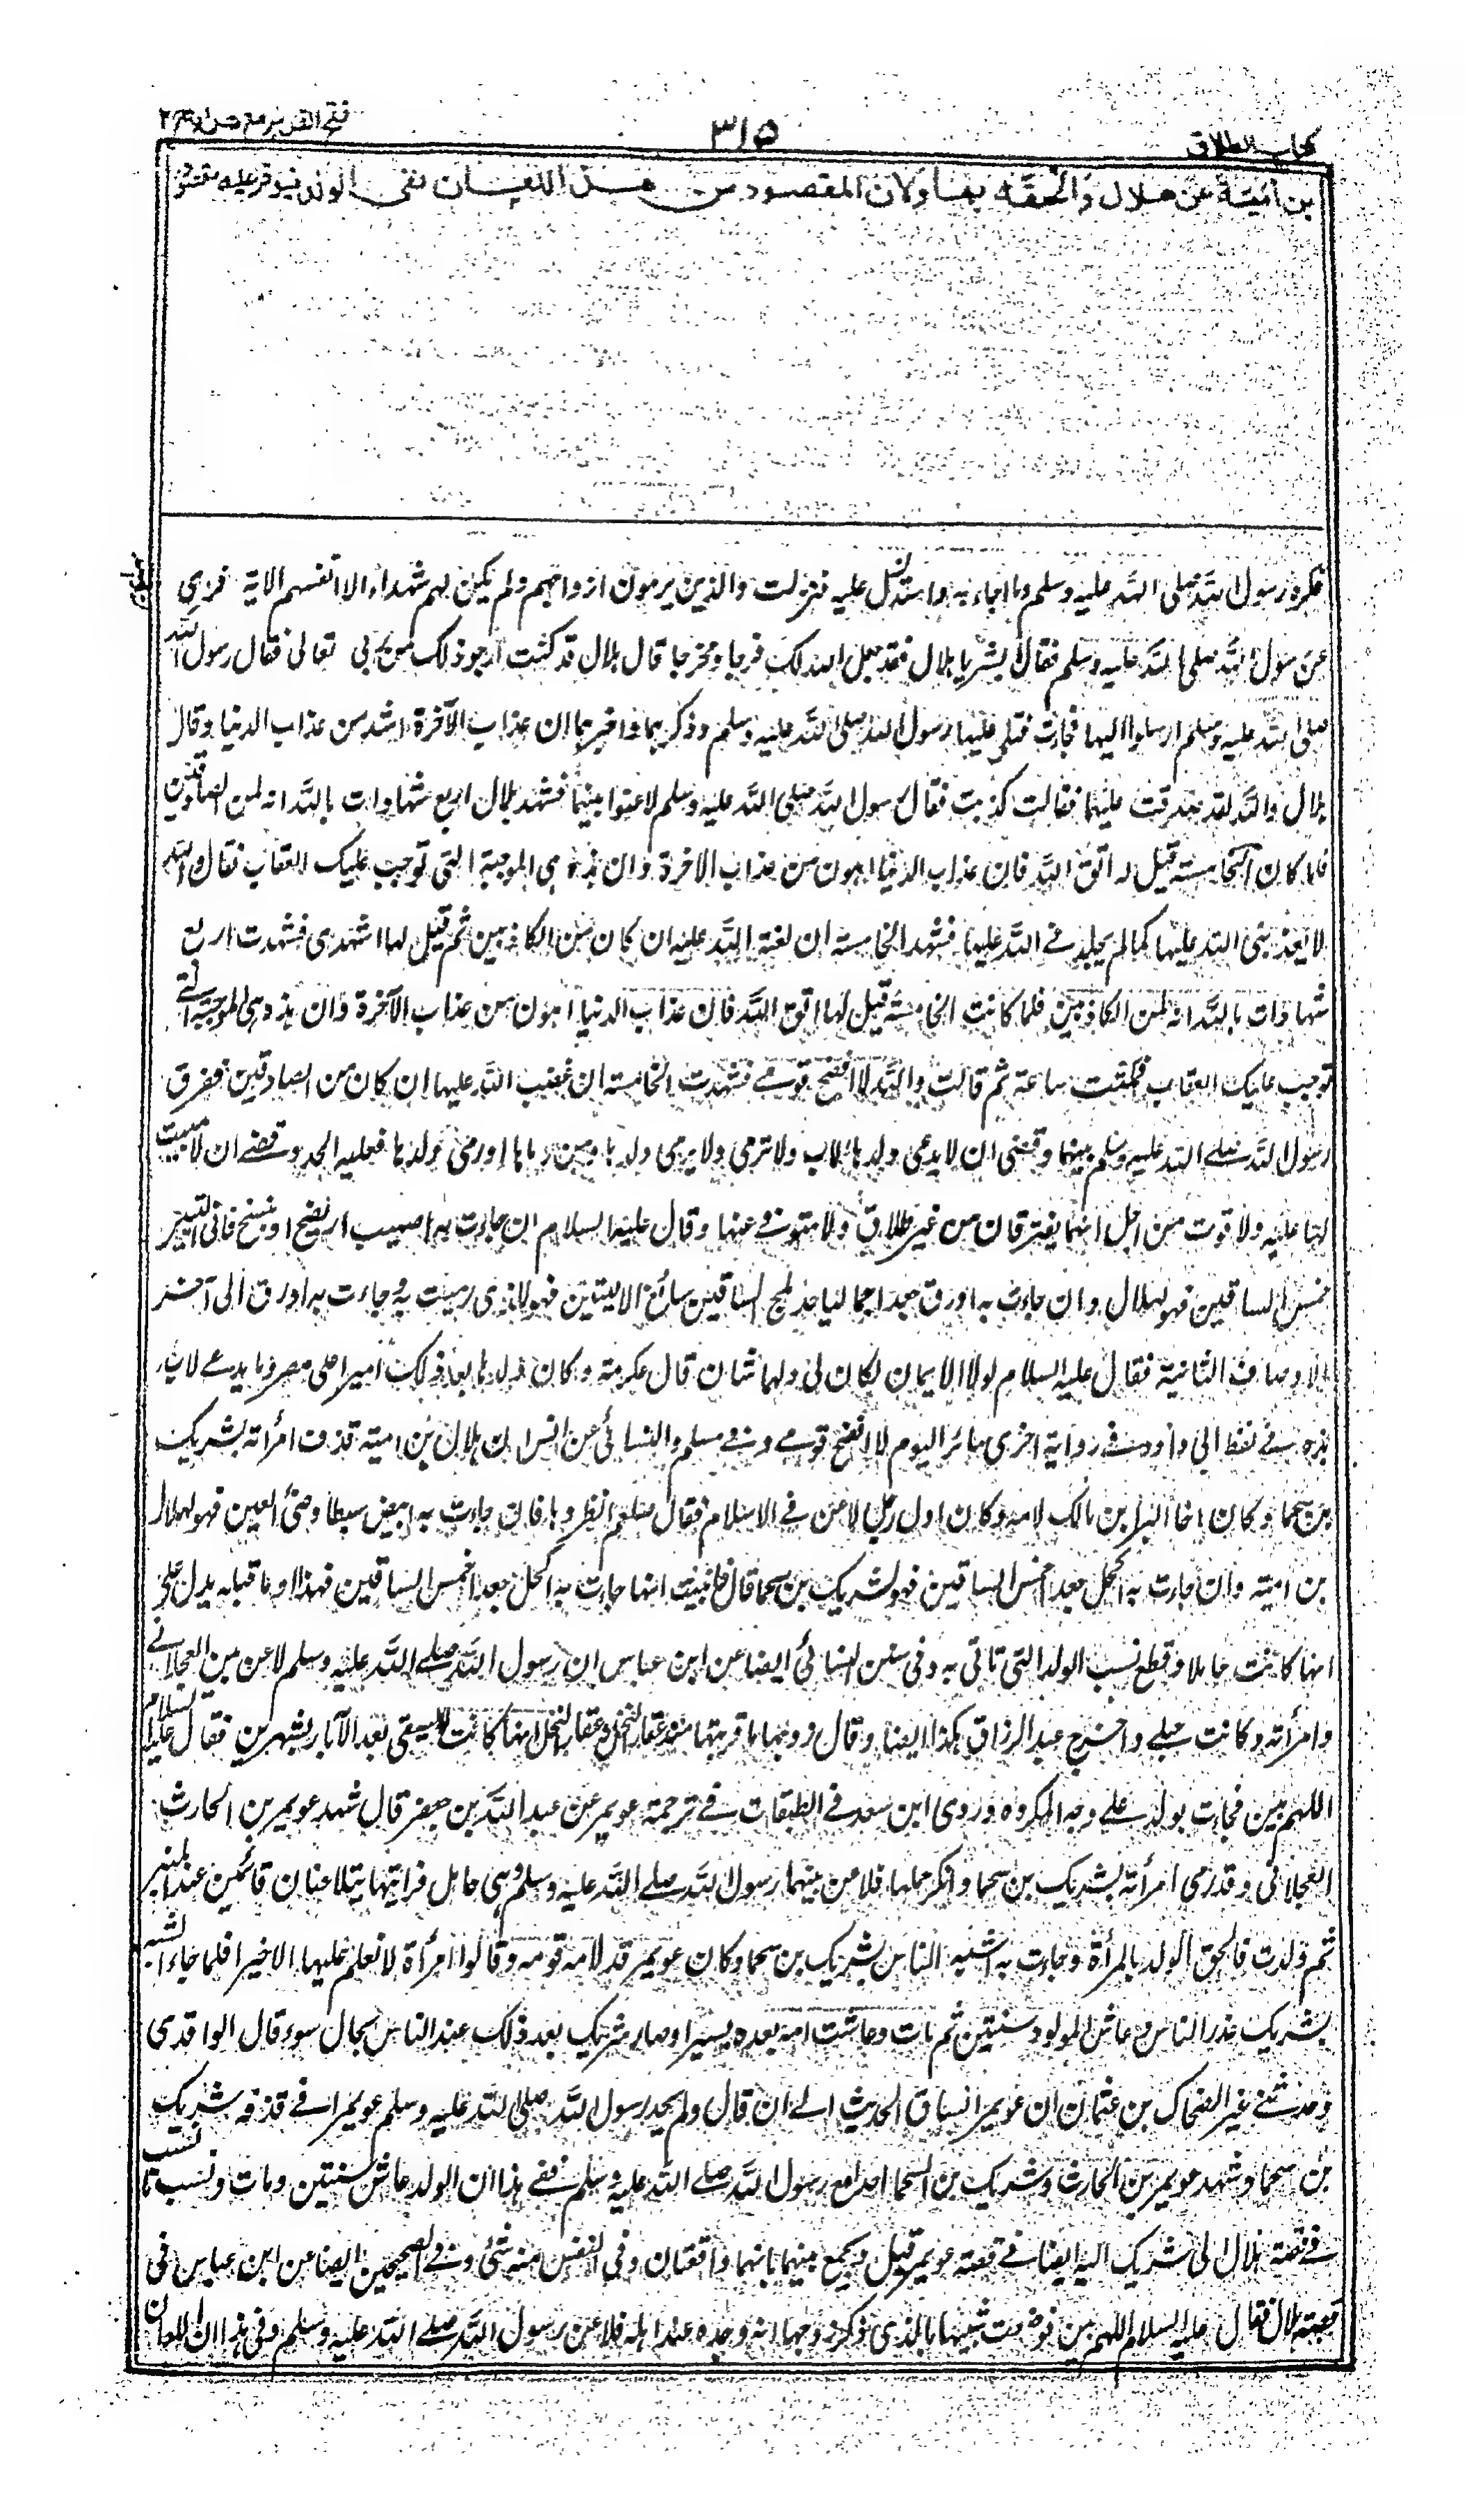 كتاب الطلاق
٣١٥
فتح القدير مع هداية ج٢
بن أمية عن هلال وألحقه بها ولان المقصود من هذا اللعان نفى الولد فيوفر عليه مقصوده
فكره رسول الله صلى الله عليه وسلم ما جاء به واشتد عليه فنزلت والذين يرمون ازواجهم ولم يكن لهم شهداء الا انفسهم الآية فسري
عن رسول الله صلى الله عليه وسلم فقال أبشر يا هلال فقد جعل الله لك فرجا ومخرجا قال هلال قد كنت أرجو ذلك من ربي تعالى فقال رسول الله
صلى الله عليه وسلم ارسلوا اليها فجاءت فتلى عليها رسول الله صلى الله عليه وسلم وذكرهما واخبرهما ان عذاب الآخرة اشد من عذاب الدنيا وقال
هلال والله لقد صدقت عليها فقالت كذبت فقال رسول الله صلى الله عليه وسلم لاعنوا بينهما فشهد هلال اربع شهادات بالله انه لمن الصادقين
فلما كان الخامسة قيل له اتق الله فان عذاب الدنيا اهون من عذاب الاخرة وان هذه هي الموجبة التى توجب عليك العقاب فقال والله
لا يعذبنى الله عليها كما لم يجلدني الله عليها فشهد الخامسة ان لعنة الله عليه ان كان من الكاذبين ثم قيل لها اشهدى فشهدت اربع
شهادات بالله انه لمن الكاذبين فلما كانت الخامسة قيل لها اتق الله فان عذاب الدنيا اهون من عذاب الآخرة وان هذه هى الموجبة التي
توجب عليك العقاب فتلكأت ساعة ثم قالت والله لا افضح قومي فشهدت الخامسة ان غضب الله عليها ان كان من الصادقين ففرق
رسول الله صلى الله عليه وسلم بينهما وقضى ان لا يدعى ولدها لاب ولا ترمى ولا يرمى ولدها ومن رماها او رمى ولدها فعليه الحد وقضى ان لا مبيت
لها عليه ولا قوت من اجل انهما يفترقان من غير طلاق ولا متوفى عنها وقال عليه السلام ان جاءت به اصيهب اريضح اثيبج ناتئ الاليتين
حمش الساقين فهو لهلال وان جاءت به اورق جعدا جماليا خدلج الساقين سابغ الاليتين فهو للذى رميت به فجاءت به اورق الى آخر
الاوصاف الثانية فقال عليه السلام لولا الايمان لكان لى ولها شان قال عكرمة وكان ولدها بعد ذلك اميرا على مصر وما يدعى لاب
هذه في لفظ ابي داود وفي رواية اخرى سائر اليوم لا افضح قومي وفي مسلم والنسائي عن انس ان هلال بن امية قذف امرأته بشريك
بن سحما وكان اخا البرا بن مالك لامه وكان اول رجل لاعن في الاسلام فقال صلعم انظروها فان جاءت به ابيض سبطا وضئ العين فهو لهلال
بن امية وان جاءت به اكحل جعدا حمش الساقين فهو لشريك بن سحما قال فانبئت انها جاءت به اكحل جعدا حمش الساقين فهذا وما قبله يدل على
انها كانت حاملا وقطع نسب الولد التى تاتى به وفى سنن النسائي ايضا عن ابن عباس ان رسول الله صلى الله عليه وسلم لاعن بين العجلاني
وامرأته وكانت حبلى واخرج عبد الرزاق هكذا ايضا وقال زوجها ما قربتها منذ عفار النخل وعفار النخل انها كانت لا تسقى بعد الآبار بشهرين فقال عليه السلام
اللهم بين فجاءت بولد على وجه المكروه وروى ابن سعد في الطبقات في ترجمة عويمر عن عبد الله بن جعفر قال شهد عويمر بن الحارث
العجلانى وقد رمى امرأته بشريك بن سحما وانكر حملها فلاعن بينهما رسول الله صلى الله عليه وسلم وهى حامل فرايتهما يتلاعنان قائمين عند المنبر
ثم ولدت فالحق الولد بالمرأة وجاءت به اشبه الناس بشريك بن سحما وكان عويمر قد لامه قومه وقالوا امرأة لا نعلم عليها الا خيرا فلما جاء الشبه
بشريك عذر الناس وعاش المولود سنتين ثم مات وعاشت امه بعده يسيرا وصار شريك بعد ذلك عند الناس بحال سوء قال الواقدى
وحدثني غير الضحاك بن عثمان ان عويمرا فساق الحديث الى ان قال ولم يحد رسول الله صلى الله عليه وسلم عويمرا في قذفه شريك
بن سحما وشهد عويمر بن الحارث وشريك بن السحما احدا مع رسول الله صلى الله عليه وسلم ففي هذا ان الولد عاش سنتين ومات ونسب ما نسب
في قصة هلال الى شريك اليه ايضا في قصة عويمر قيل ويجمع بينهما بانهما واقعتان وفى النفس منه شئ وفي الصحيحين ايضا عن ابن عباس فى
قصة هلال فقال عليه السلام اللهم بين فوضعت شبيها بالذى ذكر زوجها انه وجده عند اهله فلاعن رسول الله صلى الله عليه وسلم وفى هذا ان اللعان